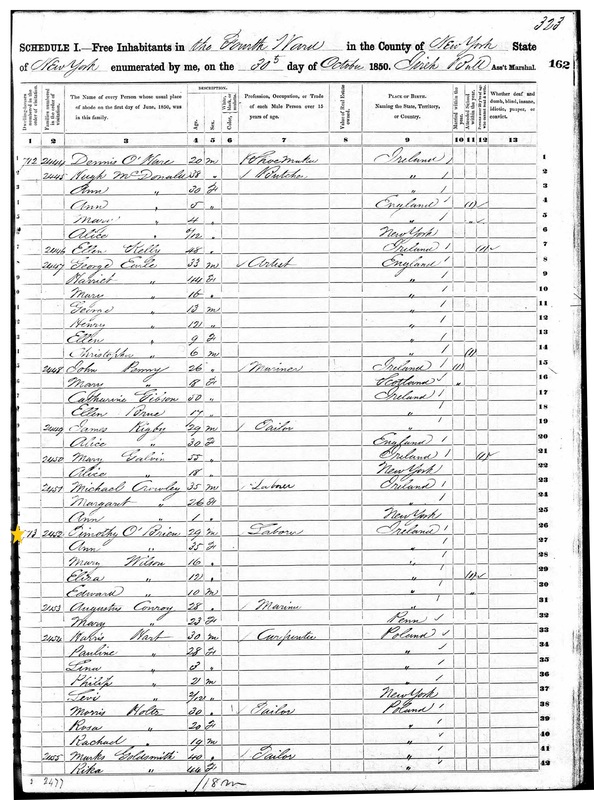 323
SCHEDULE I.—Free Inhabitants in the Fourth Ward in the County of New York State
of New York enumerated by me, on the 30 day of October 1850. Ass't Marshal. 162
DESCRIPTION.
The Name of every Person whose usual place of abode on the first day of June, 1850, was in this family.
Age. Sex.
Profession, Occupation, or Trade of each Male Person over 15 years of age.
Value of Real Estate owned.
PLACE OF BIRTH. Naming the State, Territory, or Country.
Whether deaf and dumb, blind, insane, idiotic, pauper, or convict.
1 2 3 4 5 6 7 8 9 10 11 12 13
712 2444 Dennis O'Hare 20 m Shoemaker Ireland 1
2445 Hugh McDonald 38 " Butcher " 2
Ann " 30 F " 3
Ann " 5 " England (1) 4
Mary " 4 " " " 5
Alice " /12 " New York 6
2446 Ellen Kelly 48 " Ireland (1) 7
2447 George 33 m Artist England 8
Harriet " 44 F " 9
Mary " 16 " " 10
George " 13 m " 11
Henry " 12 " " 12
Ellen " 9 F " 13
Christopher " 6 m " (1) 14
2448 John Penny 26 " Mariner Ireland (1) 15
Mary " 18 F Scotland " 16
Catharine Gibson 40 " Ireland 17
Ellen 17 " " 18
2449 James Rigby 29 m Tailor " 19
Alice " 30 F England 20
2450 Mary Galvin 55 " Ireland (1) 21
Alice " 18 " New York 22
2451 Michael Crowley 35 m Laborer Ireland 23
Margaret " 26 F " 24
Ann " 1 " New York 25
713 2452 Timothy O'Brien 29 m Labore Ireland 26
Ann " 35 F " 27
Mary Wilson 16 " " 28
Eliza " 12 " " (1) 29
Edward " 10 m " " 30
2453 Augustus Conroy 28 " Marine " 31
Mary " 23 F Penn 32
2454 Harris Wart 30 m Carpenter Poland 33
Pauline " 28 F " 34
Lena " 3 " " 35
Philip " 21 m " 36
Levi " /12 " New York 37
Morris Holtz 30 " Tailor Poland 38
Rosa " 20 F " 39
Rachael " 19 m " 40
2455 Marks Goldsmith 40 " Tailor " 41
Rika " 44 F " 42
2477
18 m